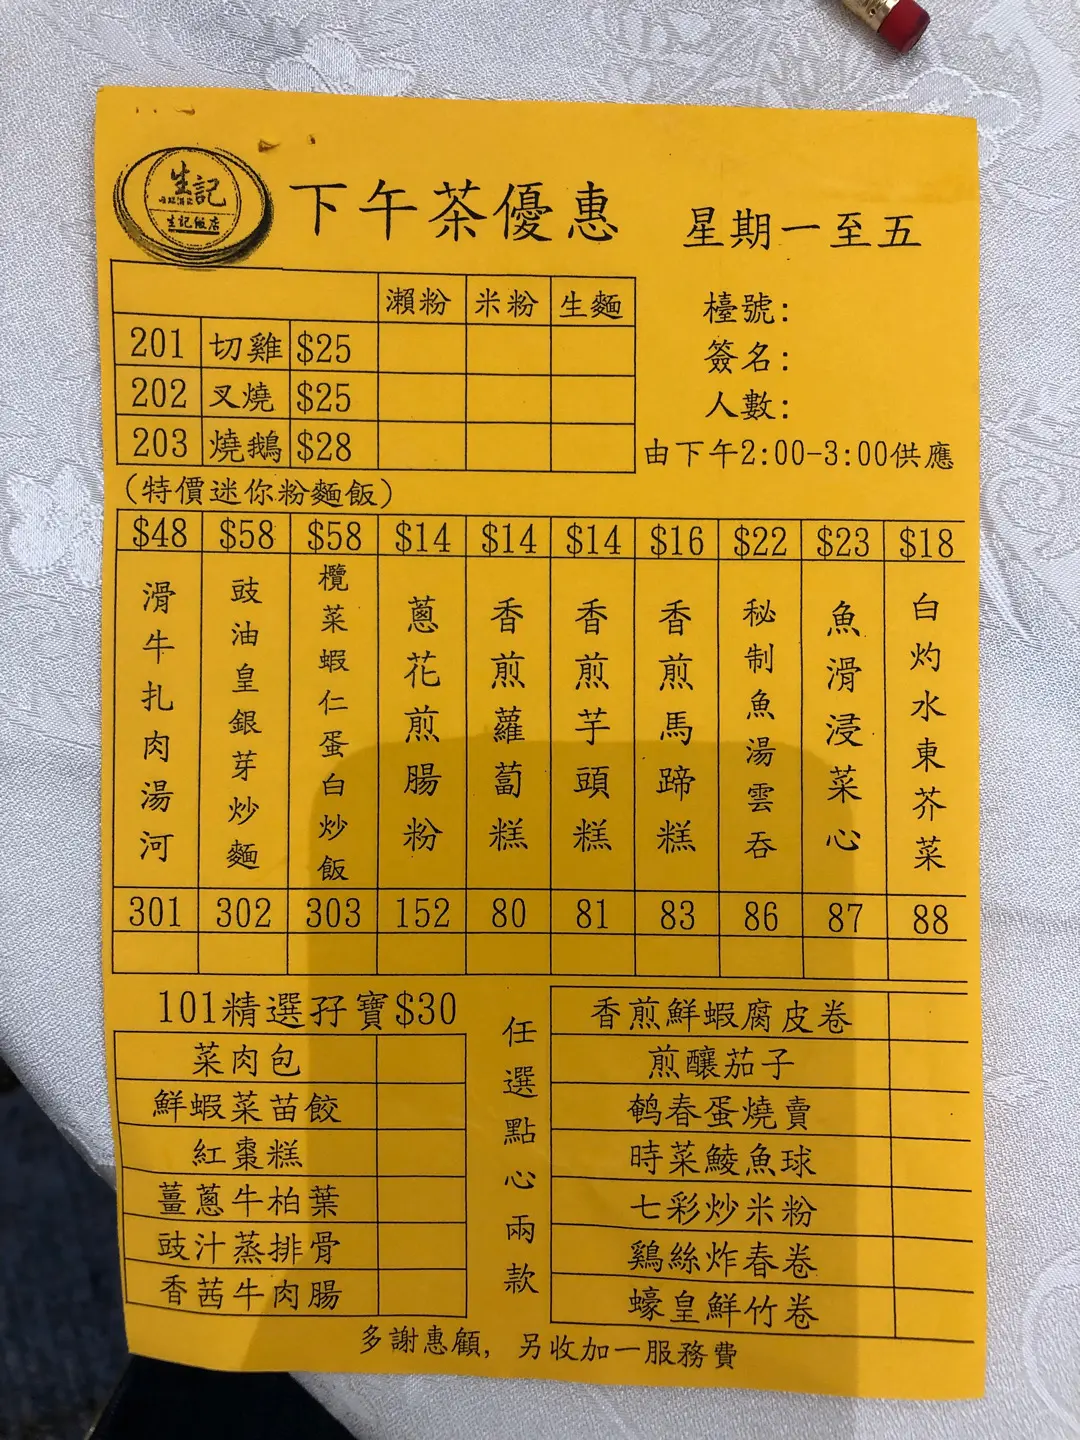 生記
生記飯店
下午茶優惠
星期一至五
瀨粉 米粉 生麵
201 切雞 $25
202 叉燒 $25
203 燒鵝 $28
檯號:
簽名:
人數:
由下午2:00-3:00供應
(特價迷你粉麵飯)
$48 $58 $58 $14 $14 $14 $16 $22 $23 $18
滑牛扎肉湯河
豉油皇銀芽炒麵
欖菜蝦仁蛋白炒飯
蔥花煎腸粉
香煎蘿蔔糕
香煎芋頭糕
香煎馬蹄糕
秘制魚湯雲吞
魚滑浸菜心
白灼水東芥菜
301 302 303 152 80 81 83 86 87 88
101精選孖寶$30
菜肉包
鮮蝦菜苗餃
紅棗糕
薑蔥牛柏葉
豉汁蒸排骨
香茜牛肉腸
任選點心兩款
香煎鮮蝦腐皮卷
煎釀茄子
鹌春蛋燒賣
時菜鯪魚球
七彩炒米粉
鷄絲炸春卷
蠔皇鮮竹卷
多謝惠顧, 另收加一服務費